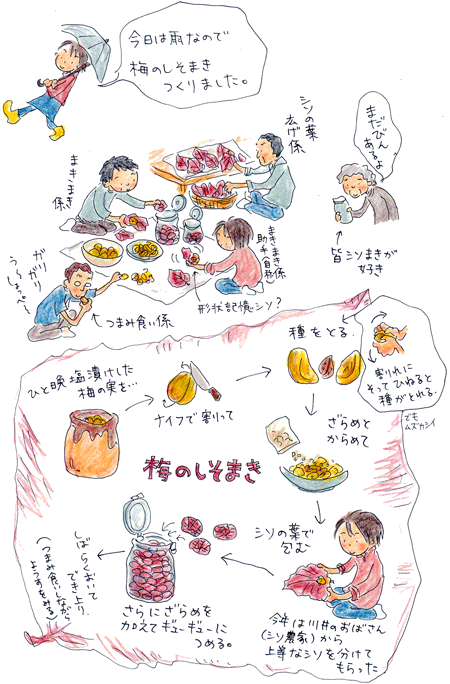 今日は雨なので
梅のしそまき
つくりました。
シソの葉
広げ係
まだびん
あるよ
まきまき
係
まきまき係
助手(自然)
ガリ
ガリガリ
う〜しょっぺー
↑つまみ食い係
形状記憶シソ?
皆シソまきが
好き
ひと晩塩漬けした
梅の実を…
ナイフで割りって
種をとる.
割れ目にそってひねると
種がとれる.
でも
ムズカシイ
ざらめと
からめて
梅のしそまき
シソの葉で
包む
今年は川井のおばさん
(シソ農家)から
上等なシソを分けて
もらった
さらにざらめを
加えてギューギューに
つめる。
しばらくおいて
でき上り.
(つまみ食いしながら
ようすをみる)